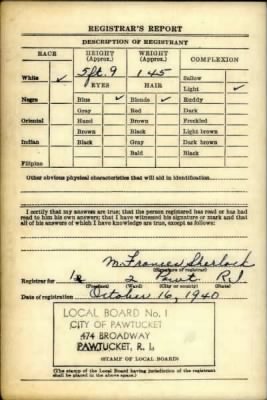 REGISTRAR'S REPORT
DESCRIPTION OF REGISTRANT
RACE HEIGHT (Approx.) WEIGHT (Approx.) COMPLEXION
White ✓ 5ft. 9 145 Sallow
EYES HAIR Light ✓
Negro Blue ✓ Blonde ✓ Ruddy
Gray Red Dark
Oriental Hazel Brown Freckled
Brown Black Light brown
Indian Black Gray Dark brown
Bald Black
Filipino
Other obvious physical characteristics that will aid in identification
I certify that my answers are true; that the person registered has read or has had
read to him his own answers; that I have witnessed his signature or mark and that
all of his answers of which I have knowledge are true, except as follows:
M. Frances Sherlock
(Signature of registrar)
Registrar for 2 Pawt R.I.
(Precinct) (Ward) (City or county) (State)
Date of registration October 16, 1940
LOCAL BOARD No. 1
CITY OF PAWTUCKET
474 BROADWAY
PAWTUCKET, R. I.
(STAMP OF LOCAL BOARD)
(The stamp of the Local Board having jurisdiction of the registrant
shall be placed in the above space.)